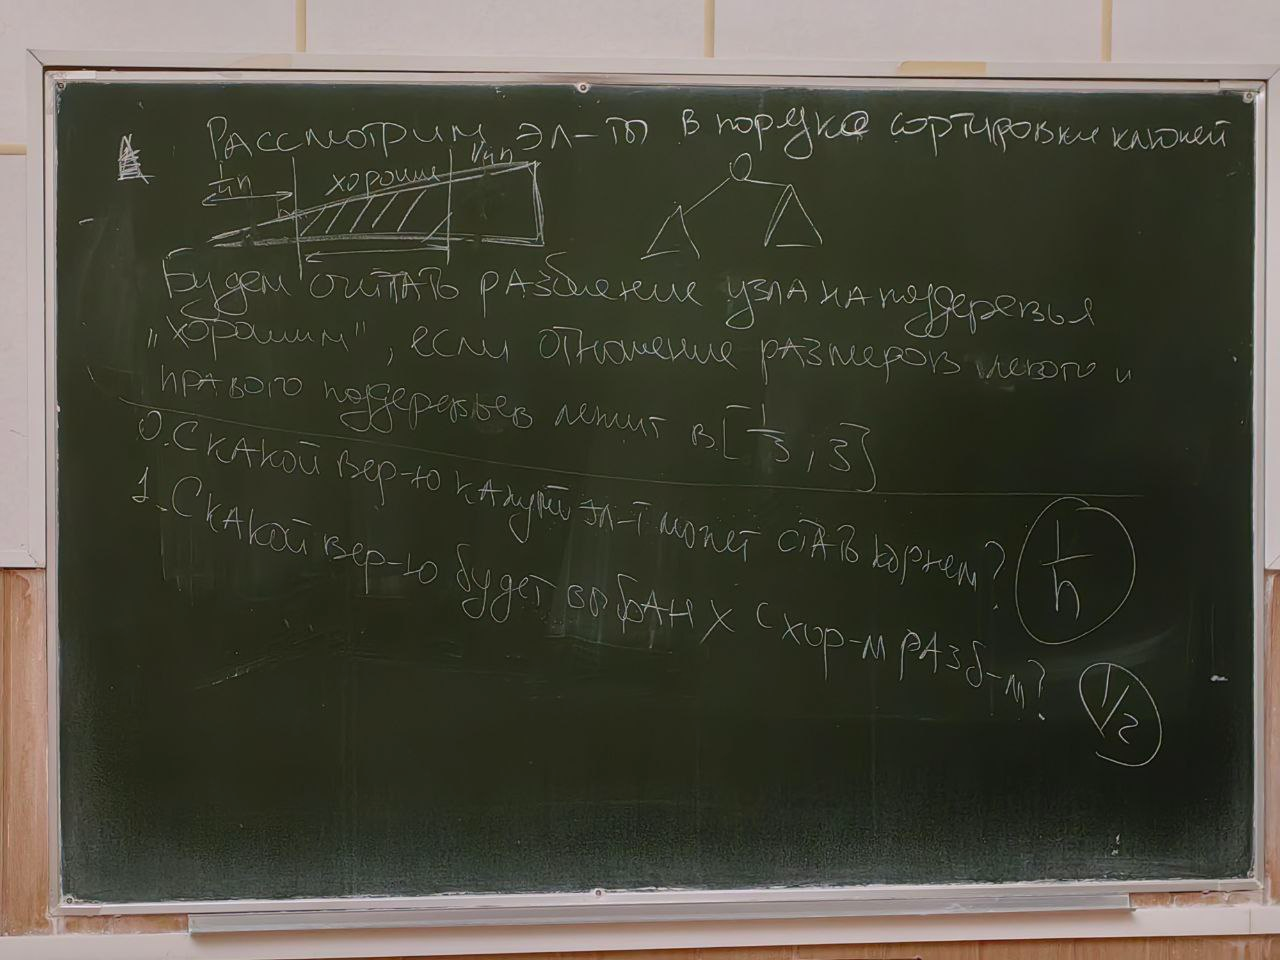 Рассмотрим эл-ты в порядке сортировки ключей
1/4 n хорошие 1/4 n
Будем считать разбиение узла на поддеревья
"хорошим", если отношение размеров левого и
правого поддеревьев лежит в [1/3, 3]
0. С какой вер-ю каждый эл-т может стать корнем? 1/n
1. С какой вер-ю будет выбран x с хор-м разб-м? 1/2